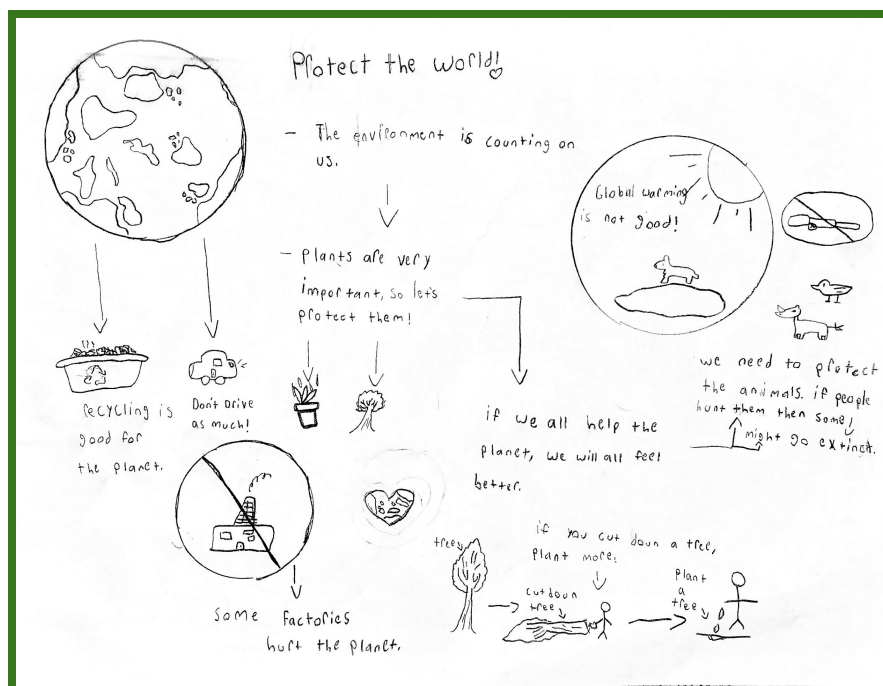 Protect the world!
- The environment is counting on
us.
- Plants are very
important, so let's
protect them!
Global warming
is not good!
recycling is
good for
the planet.
Don't Drive
as much!
if we all help the
planet, we will all feel
better.
we need to protect
the animals. if people
hunt them then some,
might go extinct.
Some Factories
hurt the planet.
if you cut down a tree,
plant more.
tree
cut down
tree
plant
a
tree